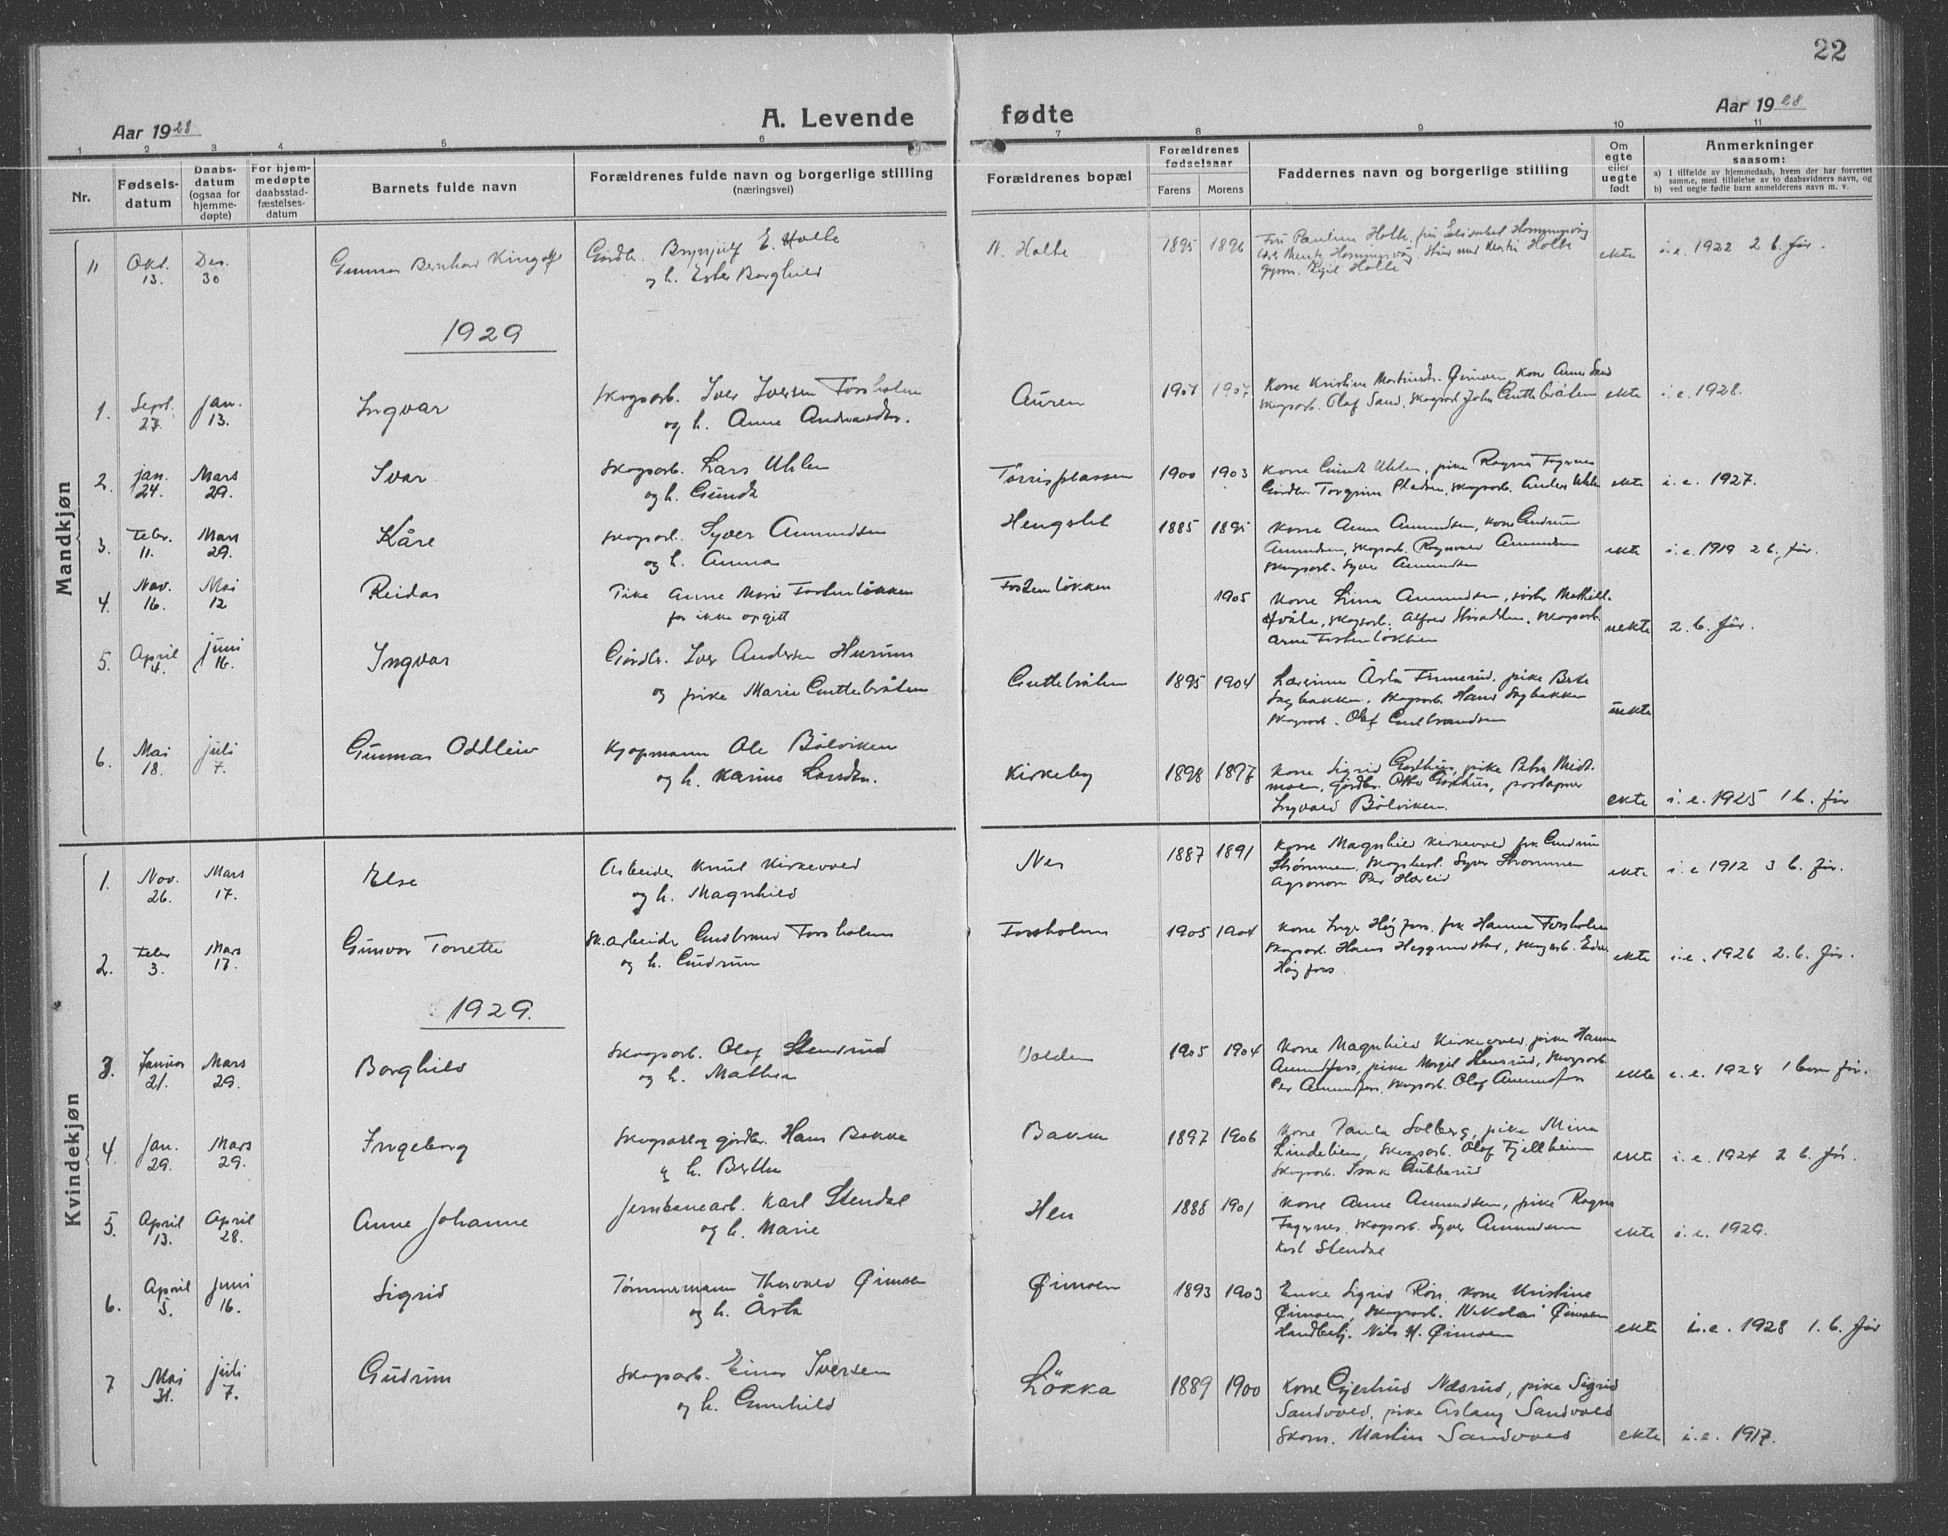 22
Aar 1928
A. Levende fødte
Aar 1928
1 2 3 4 5 6 7 8 9 10 11
Nr.
Fødsels-
datum
Daabs-
datum
(ogsaa for
hjemme-
døpte)
For hjem-
medøpte
daabsstad-
fæstelses-
datum
Barnets fulde navn
Forældrenes fulde navn og borgerlige stilling
(næringsvei)
Forældrenes bopæl
Forældrenes
fødselsaar
Farens Morens
Faddernes navn og borgerlige stilling
Om
egte
eller
uegte
født
Anmerkninger
saasom:
a) I tilfælde av hjemmedaab, hvem der har forrettet
samme, med tilføielse av to daabsvidners navn, og
b) ved uegte fødte barn anmelderens navn m. v.
Mandkjøn
11 Okt. 13. Des. 30 Gunnar Bernhard
Gårdbr. Brynjulf E. Holte
og h. Ester Borghild
N. Holte 1895 1896
Fru Pauline Holte, fru Elisabet
Holte
gymn. Egil Holte
ekte i.e. 1922 2 b. før.
1929
1. Sept. 27. Jan. 13. Ingvar
Skogsarb. Iver Iversen Forsholm
og h. Anne Andreasdtr.
Auren 1907 1907
Kone Kristine Martinsdr. Øimoen, Kone Anne Sand
skogsarb. Olaf Sand, skogsarb John Guttebråten
ekte i.e. 1928.
2. Jan. 24. Mars 29. Ivar
Skogsarb. Lars Uhlen
og h. Gunda
Tørrisplassen 1900 1903
Kone Gunda Uhlen, pike Ragna Fagernes
Gårdbr Torgrim Pladsen, skogsarb. Anders Uhlen
ekte i.e. 1927.
3. Febr. 11. Mars 29. Kåre
skogsarb. Syver Amundsen
og h. Anna
Hengslet 1885 1895
Kone Anna Amundsen, kone Gudrun
Amundsen, skogsarb. Ragnvald Amundsen
skogsarb. Syver Amundsen
ekte i.e. 1919 2 b. før.
4. Nov. 16. Mai 12 Reidar
Pike Anne Marie Fosterløkken
far ikke opgitt
Fosterløkken 1905
Kone Lina Amundsen, Mathilde
skogsarb. Alfred skogsarb.
Arne Fosterløkken
uekte 2. b. før.
5. April 4. Juni 16. Ingvar
Gårdbr. Iver Andersen Hurum
og pike Marie Guttebråten
Guttebråten 1895 1904
Lærerinne Åsta pike Berte
Skybakken, skogsarb. Hans Skybakken
skogsarb. Olaf Gulbrandsen
uekte
6. Mai 18. Juli 7. Gunnar Oddleiv
Kjøpmann Ole Bølviken
og h. Karine Larsdtr.
Kirkeby 1898 1897
Kone Sigrid pike Petra Midt-
moen, gårdbr. Otto
Ingvald Bølviken.
ekte i.e. 1925 1 b. før
Kvindekjøn
1. Nov. 26. Mars 17. Else
Arbeider Knut Kirkevold
og h. Magnhild
Nes 1887 1891
Kone Magnhild Kirkevold frk Gudrun
Strømmen, Syver Strømmen
Agronom Per
ekte i.e 1912 3 b. før.
2. Febr 3. Mars 17. Gunvor Torrette
Sk.arbeider Gudbrand Forsholm
og h. Gudrun
Forsholm 1905 1904
Kone Inga Høgfoss. frk Hanna Forsholm
Skogsarb. Hans skogarb.
Høgfoss.
ekte i.e. 1926 2. b. før.
1929.
3. Januar 21. Mars 29. Borghild
Skogsarb. Olaf Stensrud
og h. Mathea
Volden 1905 1904
Kone Magnhild Kirkevold, pike Hanna
Amundfoss, pike Margit skogsarb
Per Amundfoss, skogsarb. Olaf Amundfoss
ekte i.e. 1928 1 barn før.
4 Jan. 29. Mars 29. Ingeborg
Skogsarb og gårdbr. Hans Bakke
og h. Berthe
Bakke 1897 1906
Kone Paula Solberg, pike Mina
Lindelien, skogsarb. Olaf Fjellheim
skogsarb. Isak Gubberud
ekte i.e. 1924 2 b. før.
5. April 13. April 28. Anne Johanne
Jernbanearb. Karl Stendal
og h. Marie
Hen 1888 1901
Kone Anne Amundsen, pike Ragna
Fagernes, skogsarb. Syver Amundsen
Karl Stendal
ekte i.e. 1929.
6. April 5. Juni 16. Sigrid
Tømmermann Thorvald Øimoen
og h. Åsta
Øimoen 1893 1903
Enke Sigrid Kone Kristine
Øimoen, skogsarb. Nikolai Øimoen
Handelsbetj. Nils H. Øimoen
ekte i.e. 1928 1. b. før
7 Mai 31. Juli 7. Gudrun
Skogsarb. Einar Iversen
og h. Gunhild
Løkka 1889 1900
Kone Gjertrud Næsrud, pike Sigrid
Sandvold, pike Aslaug Sandvold
Skom. Martin Sandvold
ekte i.e. 1917.